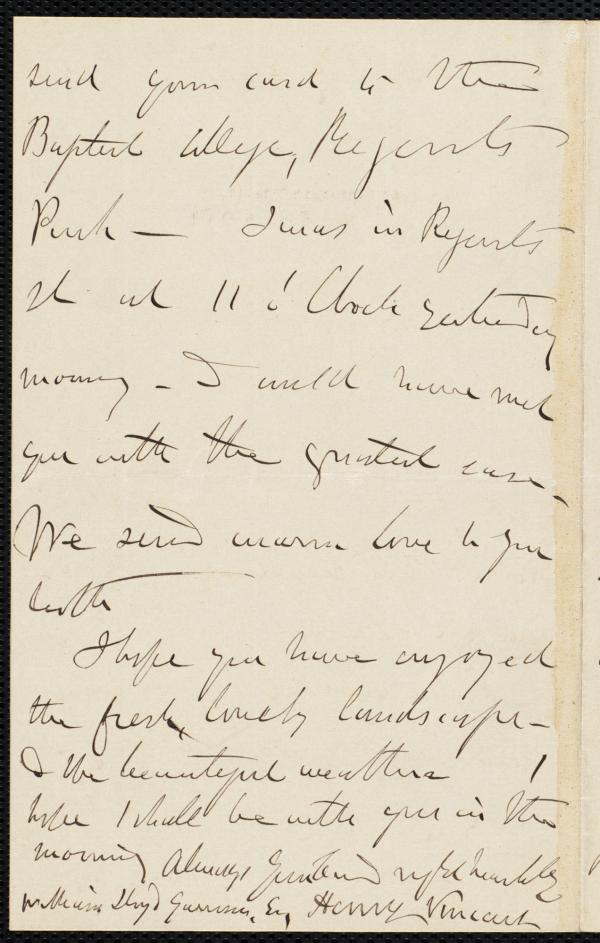 send your card to the
Baptist College, Regents
Park — I was in Regents
St at 11 o' Clock yesterday
morning - I could have met
you with the greatest ease -
We send warm love to you
both
I hope you have enjoyed
the fresh, lovely landscape -
& the beautiful weather I
hope I shall be with you in the
morning, Always Yours right heartily
William Lloyd Garrison, Esq, Henry Vincent